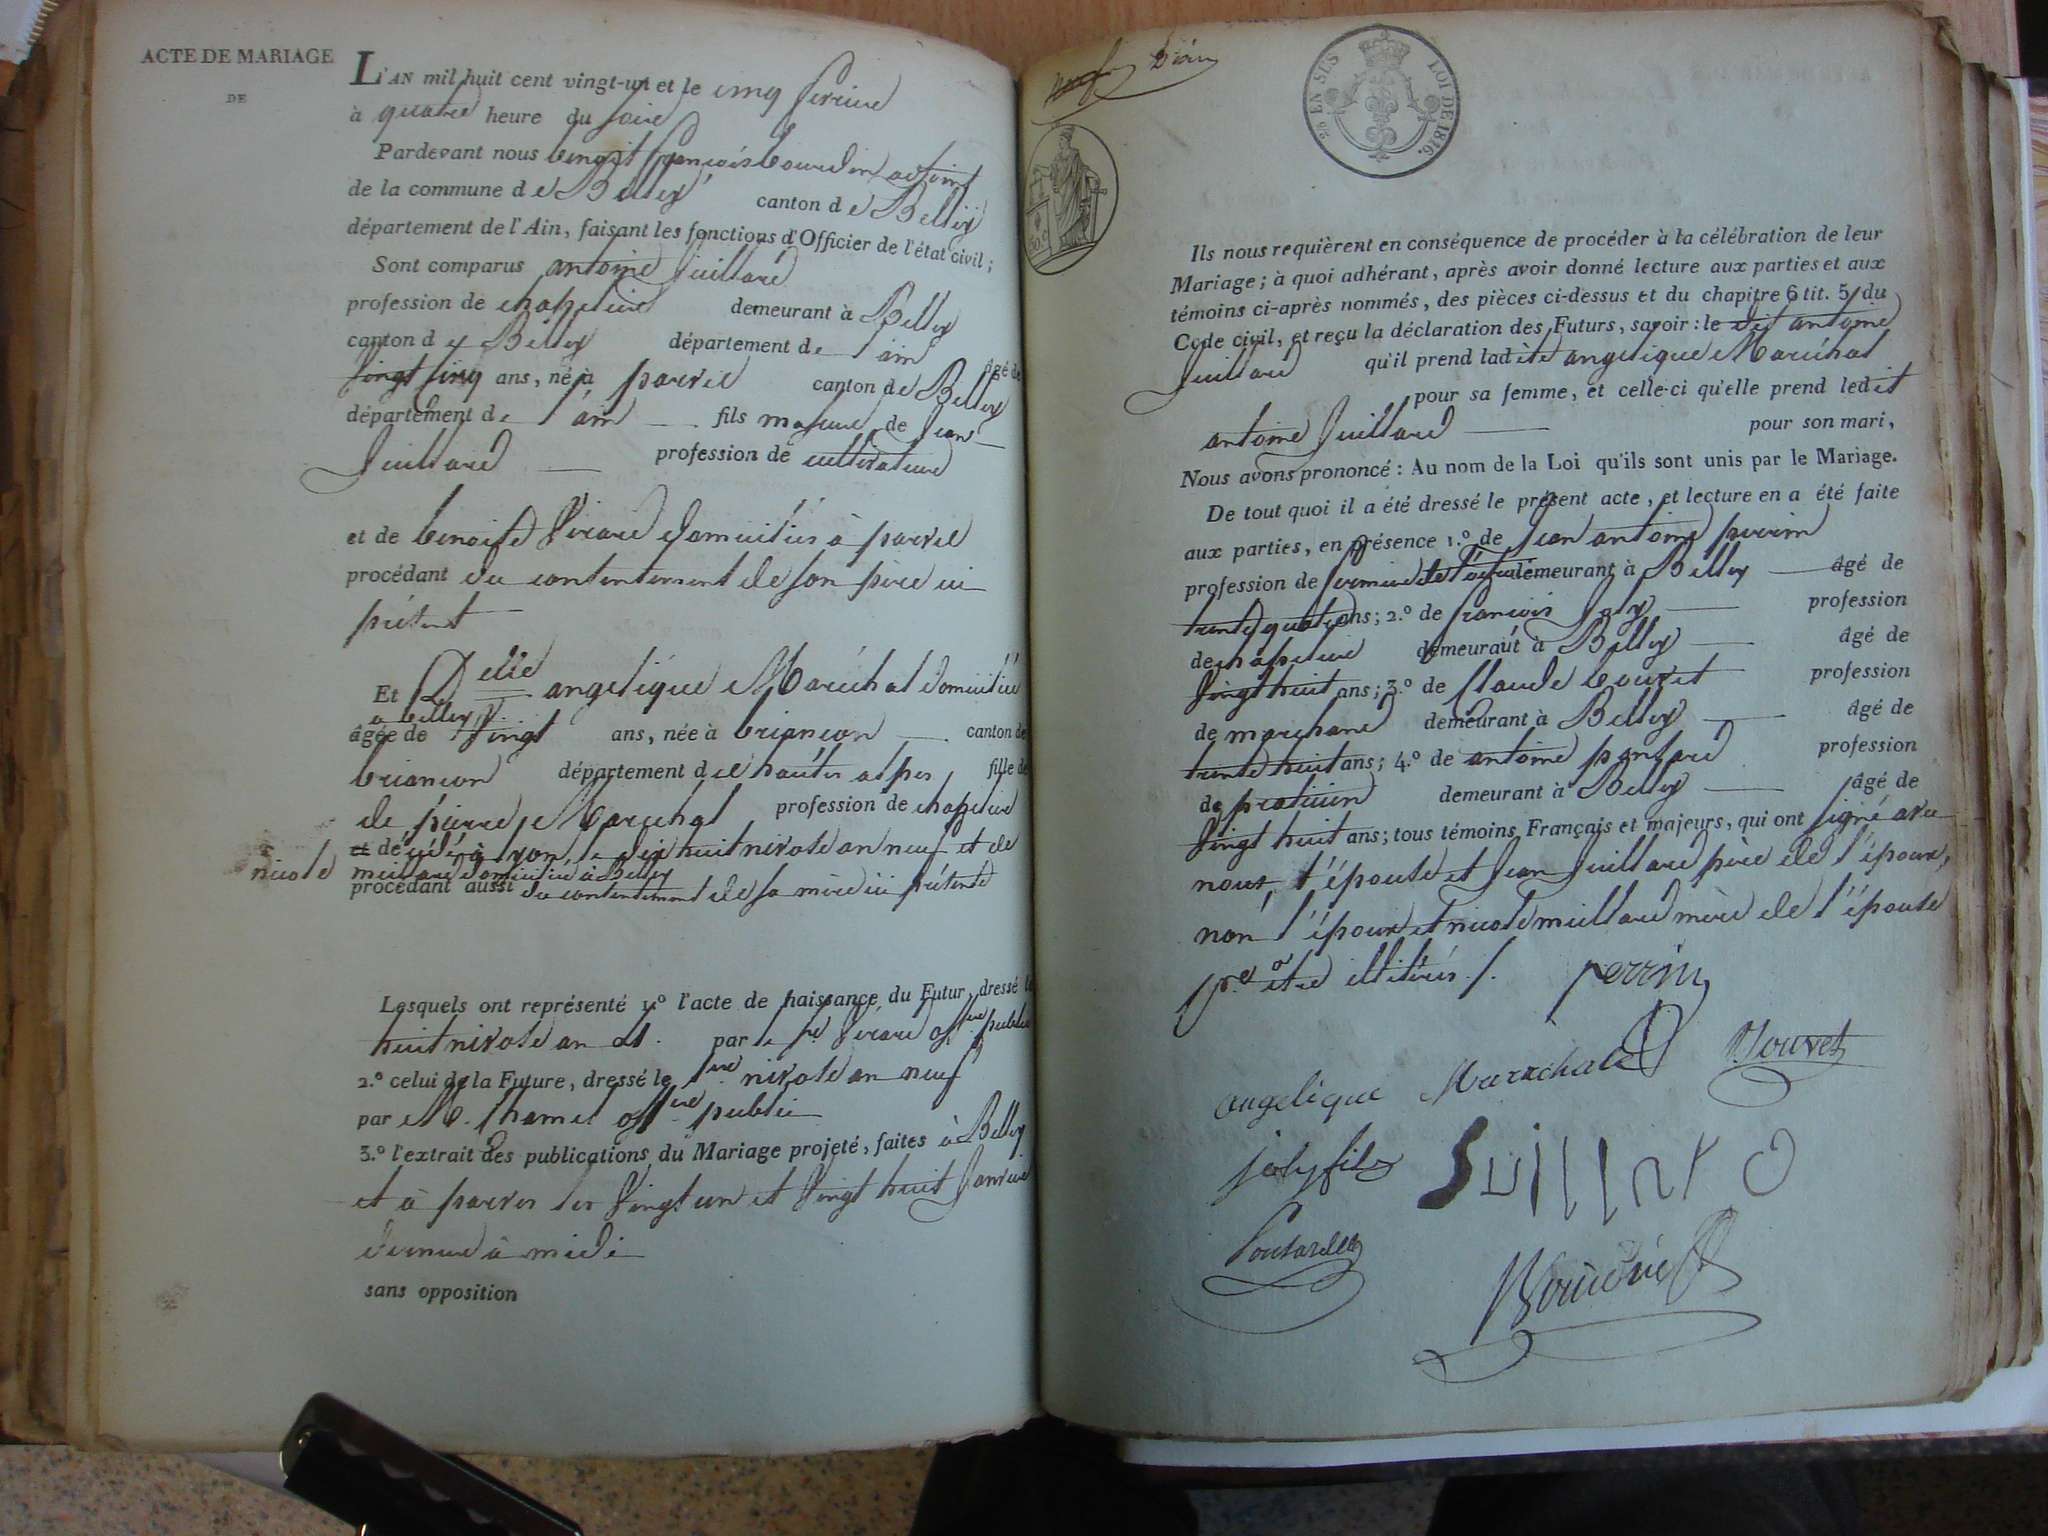 ACTE DE MARIAGE
DE
L'AN mil huit cent vingt-un et le cinq fevrier
à quatre heure du soire
Pardevant nous benoit françois bourdin adjoint
de la commune de Belley canton de Belley
département de l'Ain, faisant les fonctions d'Officier de l'état civil;
Sont comparus antoine Juillard
profession de chapelier demeurant à Belley
canton de Belley département de l'ain âgé de
vingt cinq ans, né à parves canton de Belley
département de l'ain fils majeur de Jean
Juillard profession de cultivateur
et de benoite Girard domiciliés à parves
procédant du consentement de son père ici
présent
Et Delle angelique Maréchal domiciliée
a belley
âgée de vingt ans, née à briançon canton de
briançon département de hautes alpes, fille de
de pierre Marechal profession de chapelier
et décédé à le dix huit nivose an neuf et de
nicole miellard domiciliée à Belley
procédant aussi du consentement de sa mère ici présente
Lesquels ont représenté 1.º l'acte de naissance du Futur, dressé le
huit nivose an par le sr Girard offier public
2.º celui de la Future, dressé le 1er nivose an neuf
par M. offier public
3.º l'extrait des publications du Mariage projeté, faites à Belley
et à parves les vingt un et vingt huit Janvier
dernier à midi
sans opposition
EN SUS LOI DE 1816.
50.C
Ils nous requièrent en conséquence de procéder à la célébration de leur
Mariage; à quoi adhérant, après avoir donné lecture aux parties et aux
témoins ci-après nommés, des pièces ci-dessus et du chapitre 6 tit. 5 du
Code civil, et reçu la déclaration des Futurs, savoir: le dit antoine
Juillard qu'il prend ladite angelique Maréchal
pour sa femme, et celle-ci qu'elle prend ledit
antoine Juillard pour son mari,
Nous avons prononcé: Au nom de la Loi qu'ils sont unis par le Mariage.
De tout quoi il a été dressé le présent acte, et lecture en a été faite
aux parties, en présence 1.º de Jean antoine perrin
profession de demeurant à Belley âgé de
trente quatre ans; 2.º de françois Joly profession
de chapelier demeurant à Belley âgé de
vingt huit ans; 3.º de Claude bouvet profession
de marchand demeurant à Belley âgé de
trente huit ans; 4.º de antoine profession
de praticien demeurant à Belley âgé de
vingt huit ans; tous témoins Français et majeurs, qui ont signé avec
nous, l'épouse et Jean Juillard père de l'époux,
non l'époux et nicole miellard mère de l'épouse
pr etre illitérés ./.
perrin
angelique Marechal
Bouvet
joly fils
JUILLARD
Bourdin